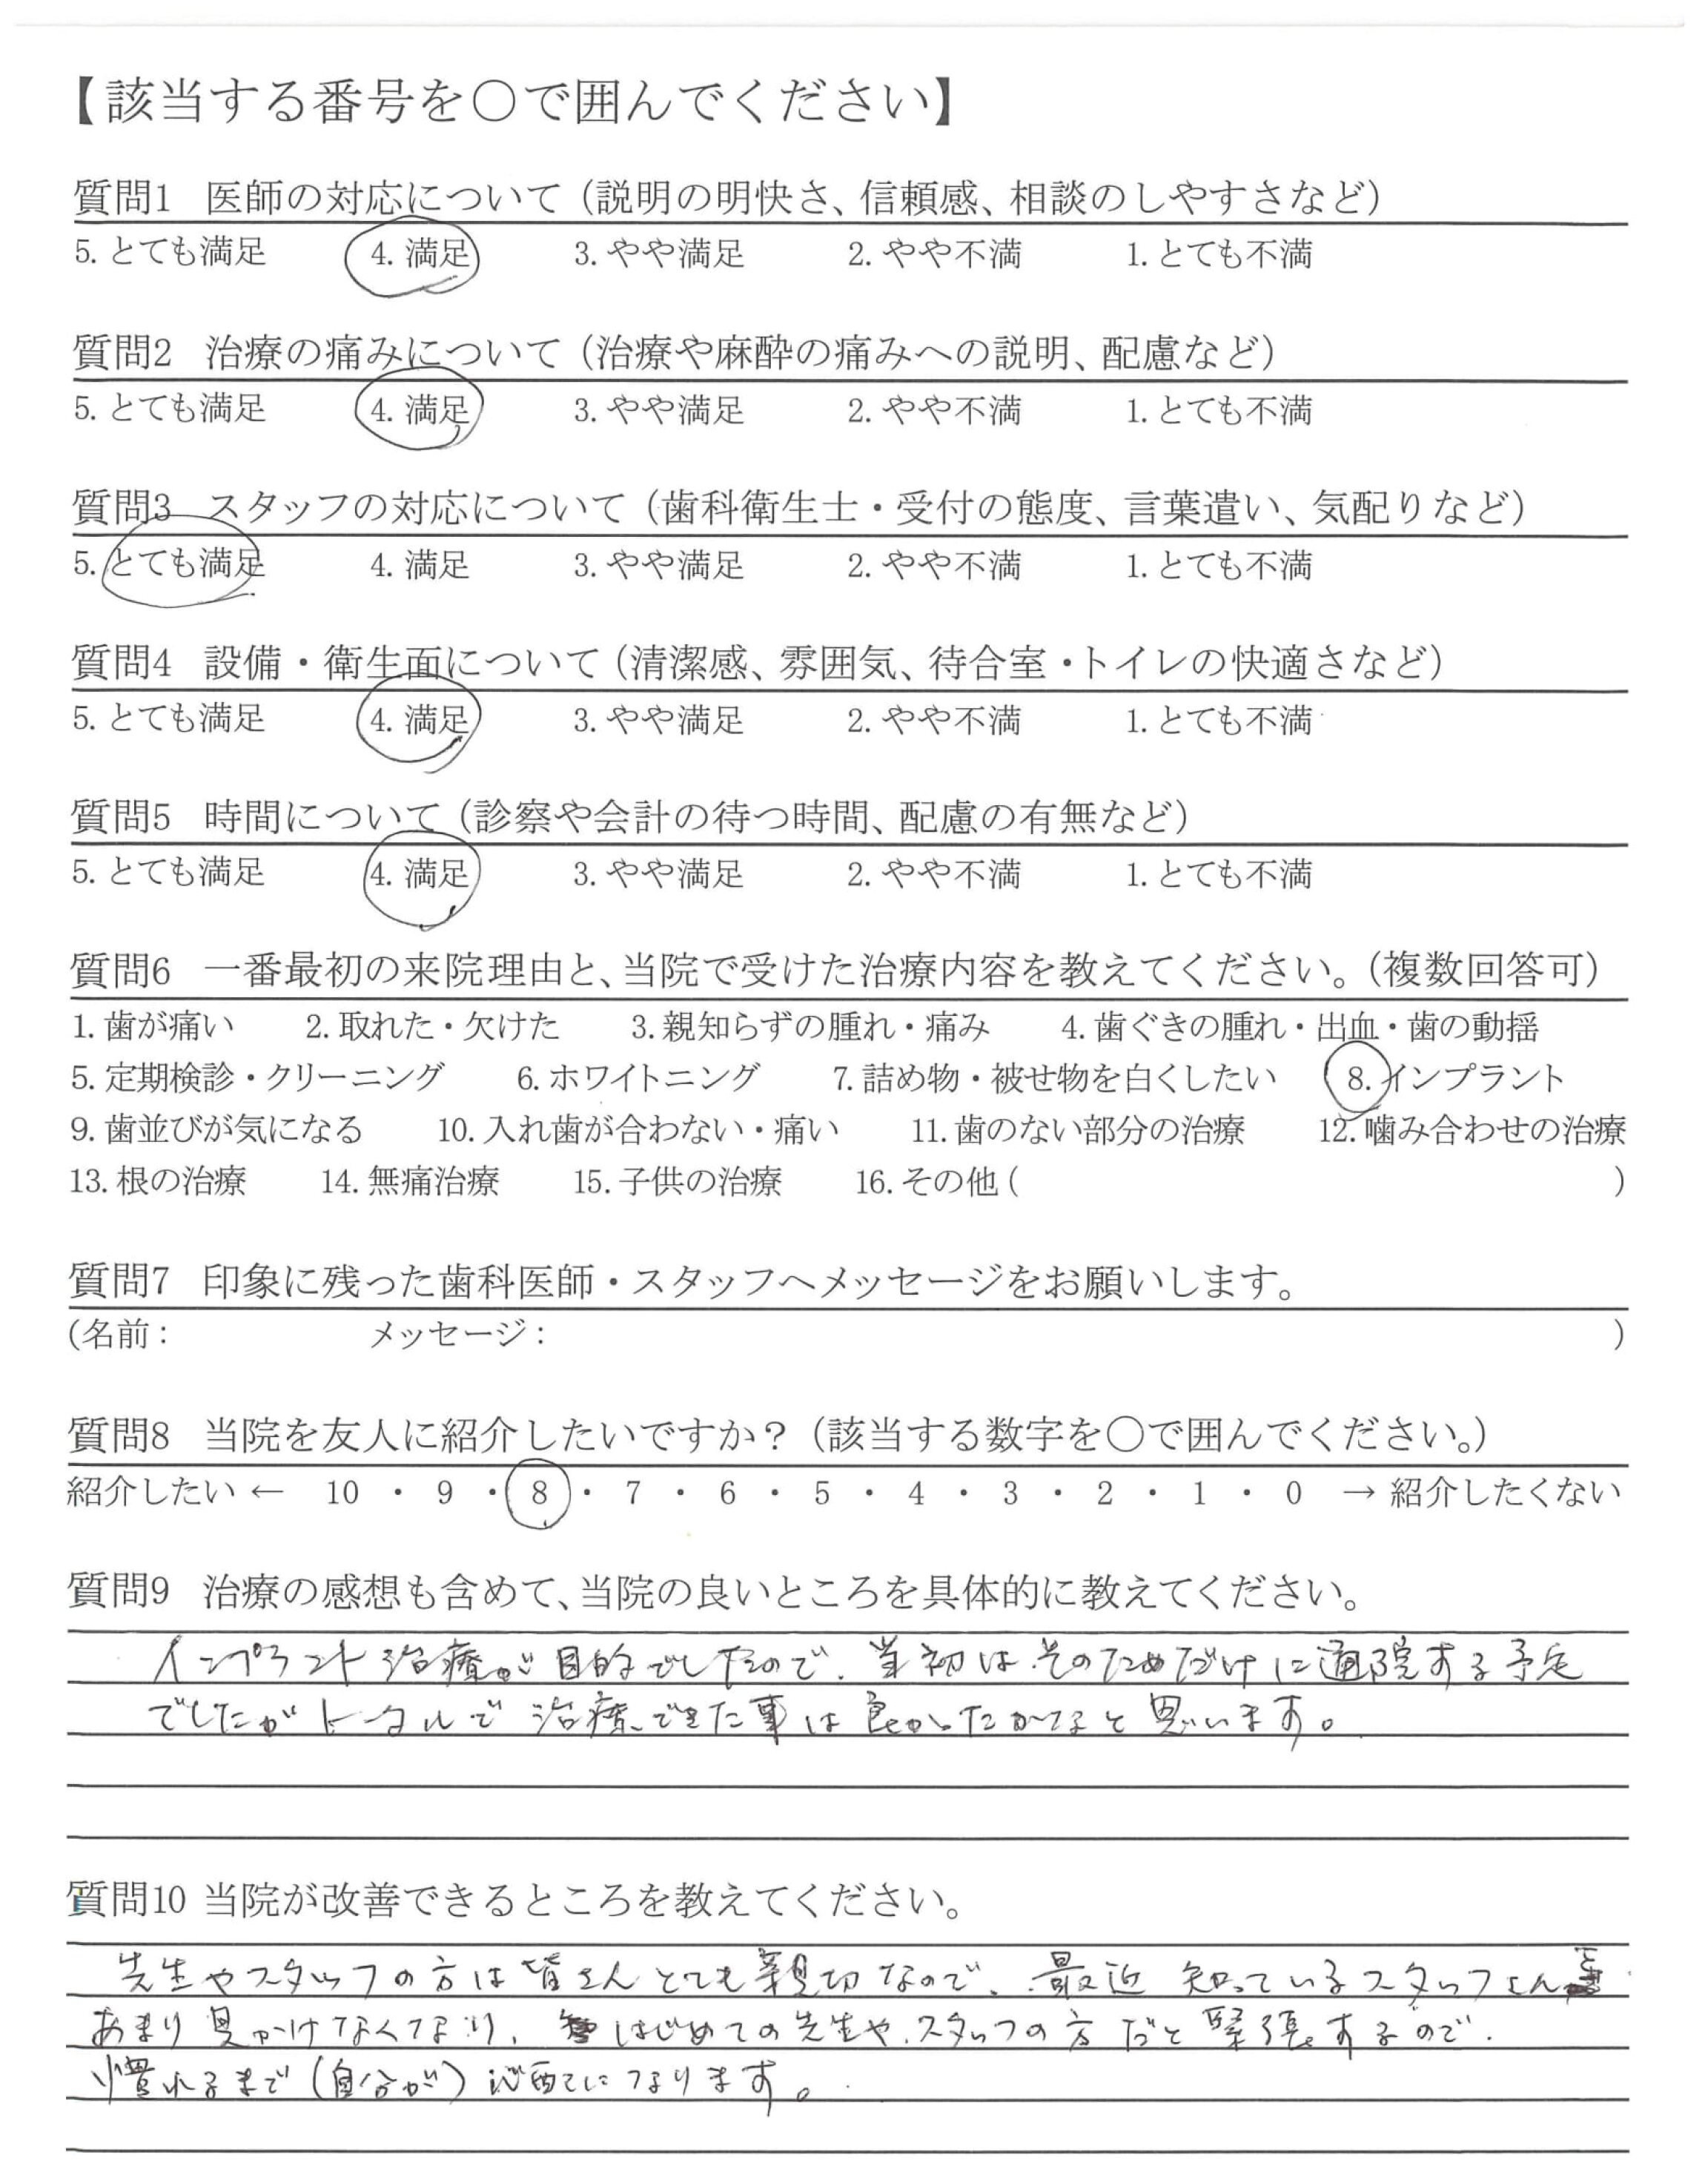 【該当する番号を〇で囲んでください】
質問1 医師の対応について（説明の明快さ、信頼感、相談のしやすさなど）
5. とても満足 4. 満足 3. やや満足 2. やや不満 1. とても不満
質問2 治療の痛みについて（治療や麻酔の痛みへの説明、配慮など）
5. とても満足 4. 満足 3. やや満足 2. やや不満 1. とても不満
質問3 スタッフの対応について（歯科衛生士・受付の態度、言葉遣い、気配りなど）
5. とても満足 4. 満足 3. やや満足 2. やや不満 1. とても不満
質問4 設備・衛生面について（清潔感、雰囲気、待合室・トイレの快適さなど）
5. とても満足 4. 満足 3. やや満足 2. やや不満 1. とても不満
質問5 時間について（診察や会計の待つ時間、配慮の有無など）
5. とても満足 4. 満足 3. やや満足 2. やや不満 1. とても不満
質問6 一番最初の来院理由と、当院で受けた治療内容を教えてください。（複数回答可）
1. 歯が痛い 2. 取れた・欠けた 3. 親知らずの腫れ・痛み 4. 歯ぐきの腫れ・出血・歯の動揺
5. 定期検診・クリーニング 6. ホワイトニング 7. 詰め物・被せ物を白くしたい 8. インプラント
9. 歯並びが気になる 10. 入れ歯が合わない・痛い 11. 歯のない部分の治療 12. 噛み合わせの治療
13. 根の治療 14. 無痛治療 15. 子供の治療 16. その他 ( )
質問7 印象に残った歯科医師・スタッフへメッセージをお願いします。
(名前： メッセージ： )
質問8 当院を友人に紹介したいですか？（該当する数字を〇で囲んでください。）
紹介したい ← 10 ・ 9 ・ 8 ・ 7 ・ 6 ・ 5 ・ 4 ・ 3 ・ 2 ・ 1 ・ 0 → 紹介したくない
質問9 治療の感想も含めて、当院の良いところを具体的に教えてください。
インプラント治療が目的でしたので、当初はそのためだけに通院する予定
でしたがトータルで治療できた事は良かったかなと思います。
質問10 当院が改善できるところを教えてください。
先生やスタッフの方は皆さんとても親切なので、最近知っているスタッフさんを
あまり見かけなくなり、はじめての先生や、スタッフの方だと緊張するので、
慣れるまで（自分が）心配になります。